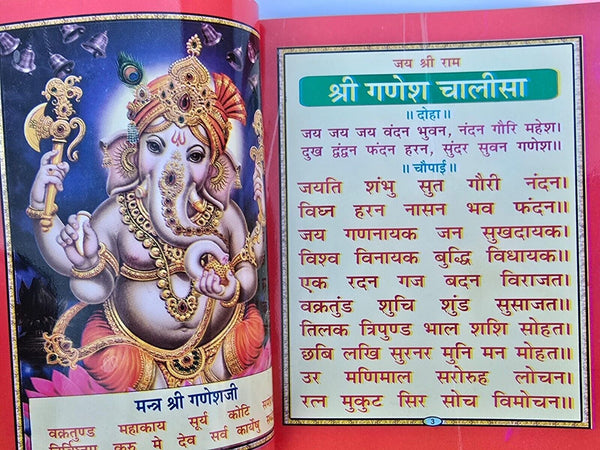 मन्त्र श्री गणेशजी
वक्रतुण्ड महाकाय सूर्य कोटि
कुरु मे देव सर्व कार्येषु
जय श्री राम
श्री गणेश चालीसा
॥ दोहा॥
जय जय जय वंदन भुवन, नंदन गौरि महेश।
दुख द्वंद्वन फंदन हरन, सुंदर सुवन गणेश॥
॥ चौपाई॥
जयति शंभु सुत गौरी नंदन।
विघ्न हरन नासन भव फंदन॥
जय गणनायक जन सुखदायक।
विश्व विनायक बुद्धि विधायक॥
एक रदन गज बदन विराजत।
वक्रतुंड शुचि शुंड सुसाजत॥
तिलक त्रिपुण्ड भाल शशि सोहत।
छबि लखि सुरनर मुनि मन मोहत॥
उर मणिमाल सरोरुह लोचन।
रत्न मुकुट सिर सोच विमोचन॥
3